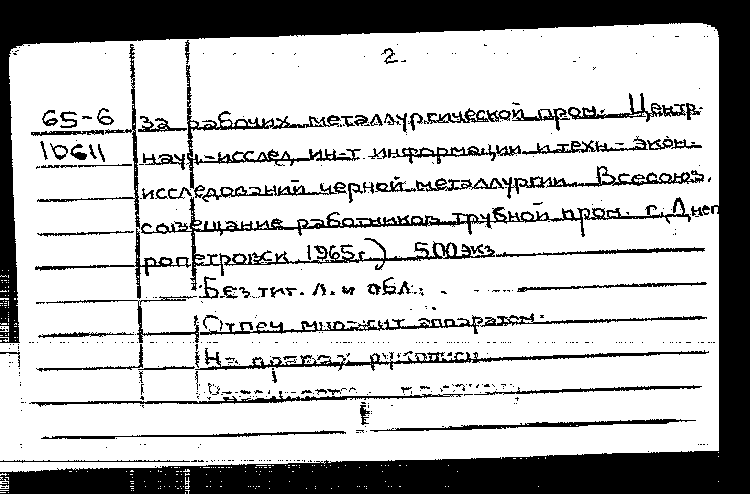 2
65-6 за рабочих металлургической пром. Центр.
10611 науч.-исслед. ин-т информации и техн.-экон.
исследований черной металлургии. Всесоюз.
совещание работников трубной пром. г. Днеп
ропетровск 1965г). 500экз.
Без тит. л. и обл.
Отпеч. множит. аппаратом.
На правах рукописи